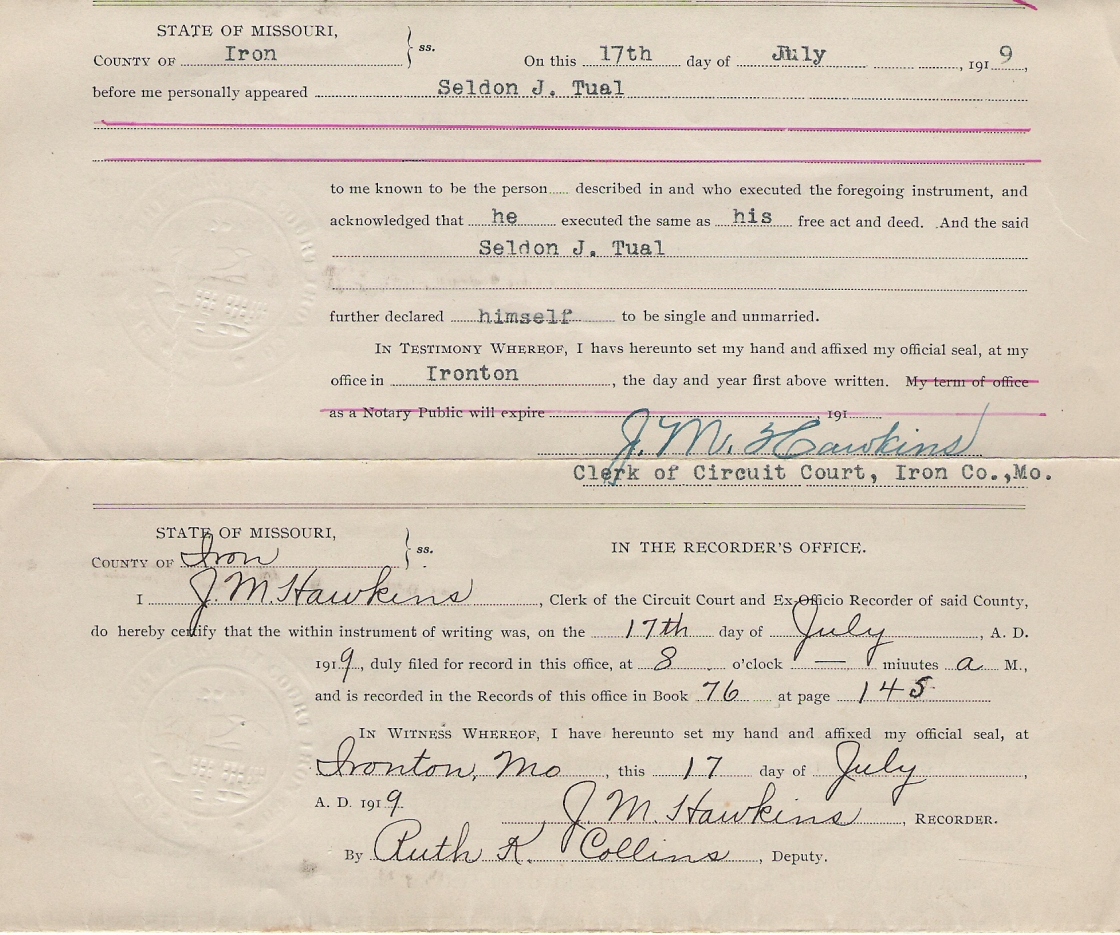 STATE OF MISSOURI,
COUNTY OF Iron } ss. On this 17th day of July , 191 9 ,
before me personally appeared Seldon J. Tual
to me known to be the person described in and who executed the foregoing instrument, and
acknowledged that he executed the same as his free act and deed. And the said
Seldon J. Tual
further declared himself to be single and unmarried.
IN TESTIMONY WHEREOF, I havs hereunto set my hand and affixed my official seal, at my
office in Ironton , the day and year first above written. My term of office
as a Notary Public will expire , 191
J. M. Hawkins
Clerk of Circuit Court, Iron Co.,Mo.
STATE OF MISSOURI,
COUNTY OF Iron } ss. IN THE RECORDER'S OFFICE.
I J. M. Hawkins , Clerk of the Circuit Court and Ex-Officio Recorder of said County,
do hereby certify that the within instrument of writing was, on the 17th day of July , A. D.
1919, duly filed for record in this office, at 8 o'clock — minutes a M.,
and is recorded in the Records of this office in Book 76 at page 145
IN WITNESS WHEREOF, I have hereunto set my hand and affixed my official seal, at
Ironton, Mo , this 17 day of July ,
A. D. 1919 J. M. Hawkins , RECORDER.
By Ruth K. Collins , Deputy.